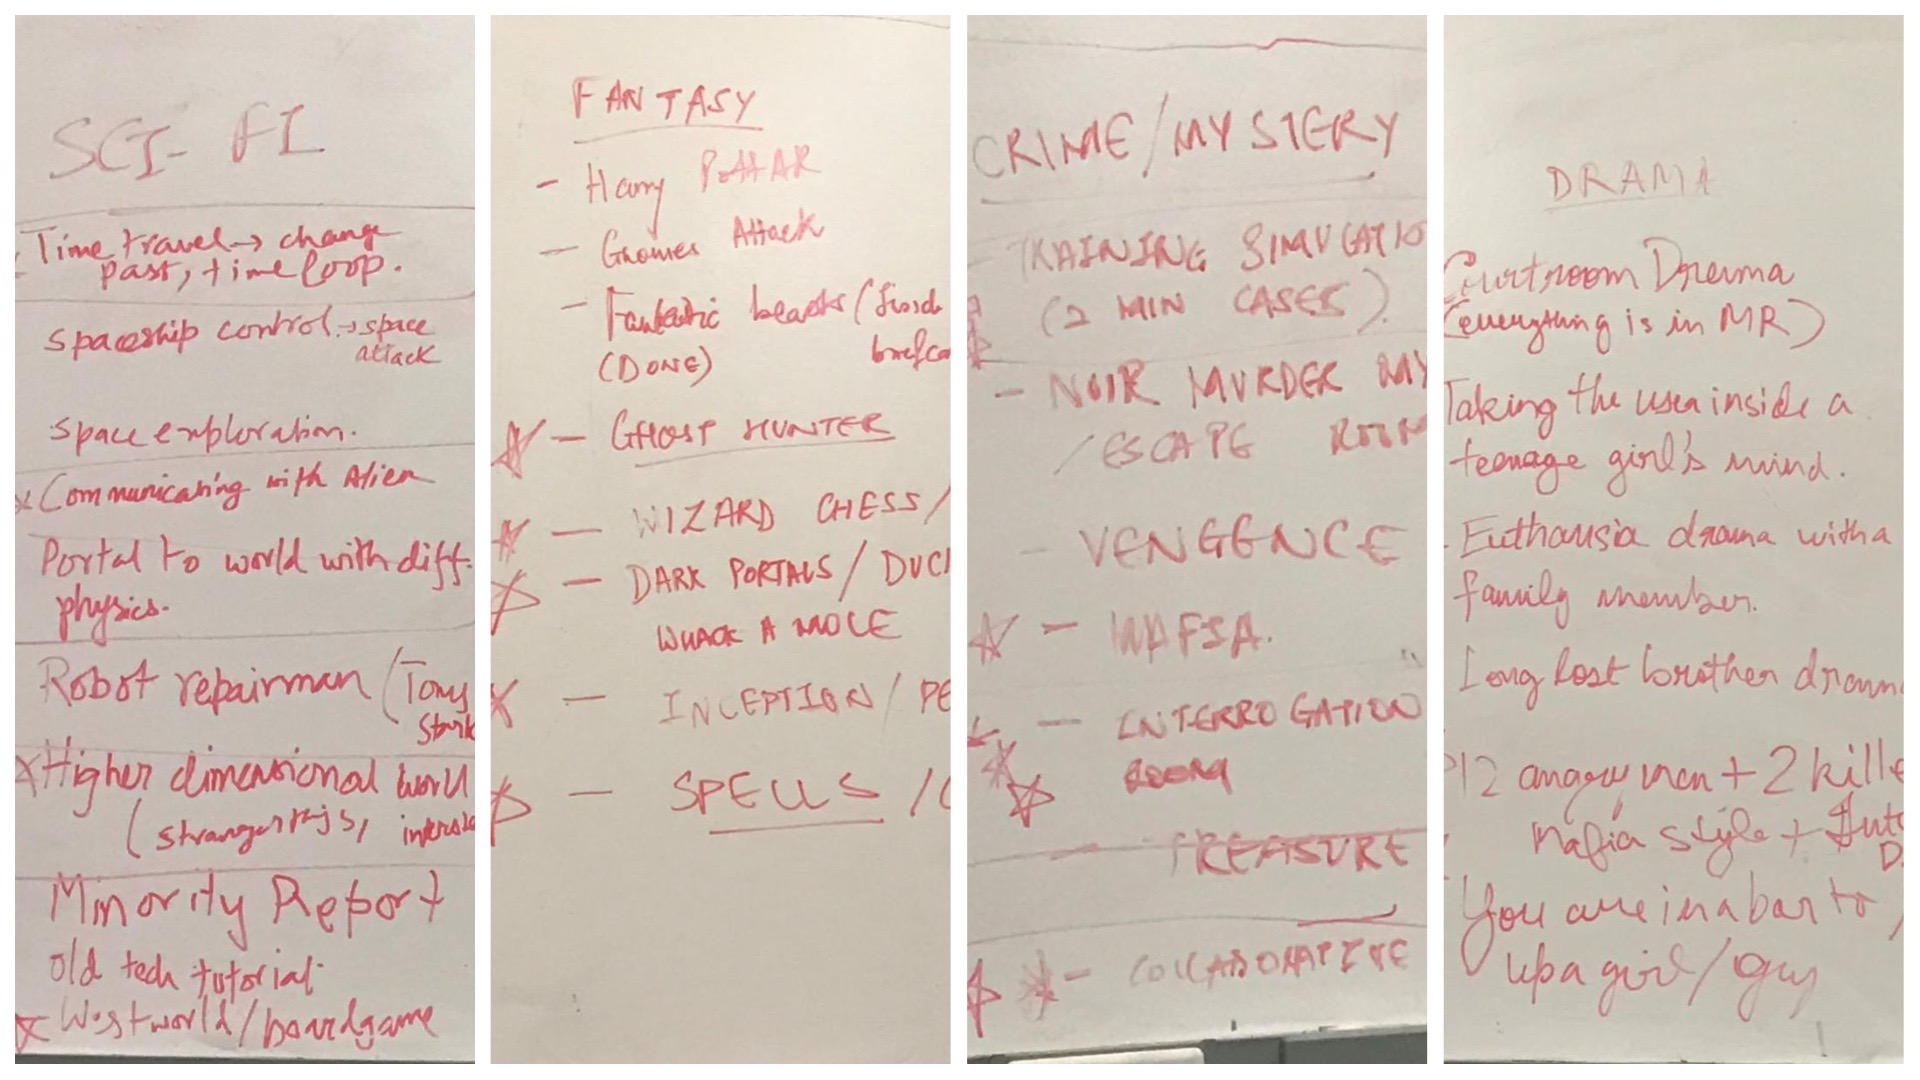 SCI-FI
Time travel → change
past, time loop.
Spaceship control → space
attack
Space exploration.
Communicating with Alien
Portal to world with diff.
physics.
Robot repairman (Tony
Stark
Higher dimensional world
(stranger
Minority Report
Old tech tutorial
Westworld/boardgame
FANTASY
- Harry PottAR
- Gnomes Attack
- Fantastic beasts (find
(DONE)
- GHOST HUNTER
- WIZARD CHESS/
- DARK PORTALS/
WHACK A MOLE
- INCEPTION/
- SPELLS /
CRIME/MYSTERY
- TRAINING SIMULATIO
(2 MIN CASES).
- NOIR MURDER MY
/ESCAPE ROOM
- VENGENCE
- MAFIA.
- INTERROGATION
ROOM
- TREASURE
- COLLABORATIVE
DRAMA
Courtroom Drama
(everything is in MR)
Taking the user inside a
teenage girl's mind.
Euthansia drama with a
family member.
Long lost brother dram
12 angry men + 2 kille
Mafia style +
You are in a bar to
up a girl/guy